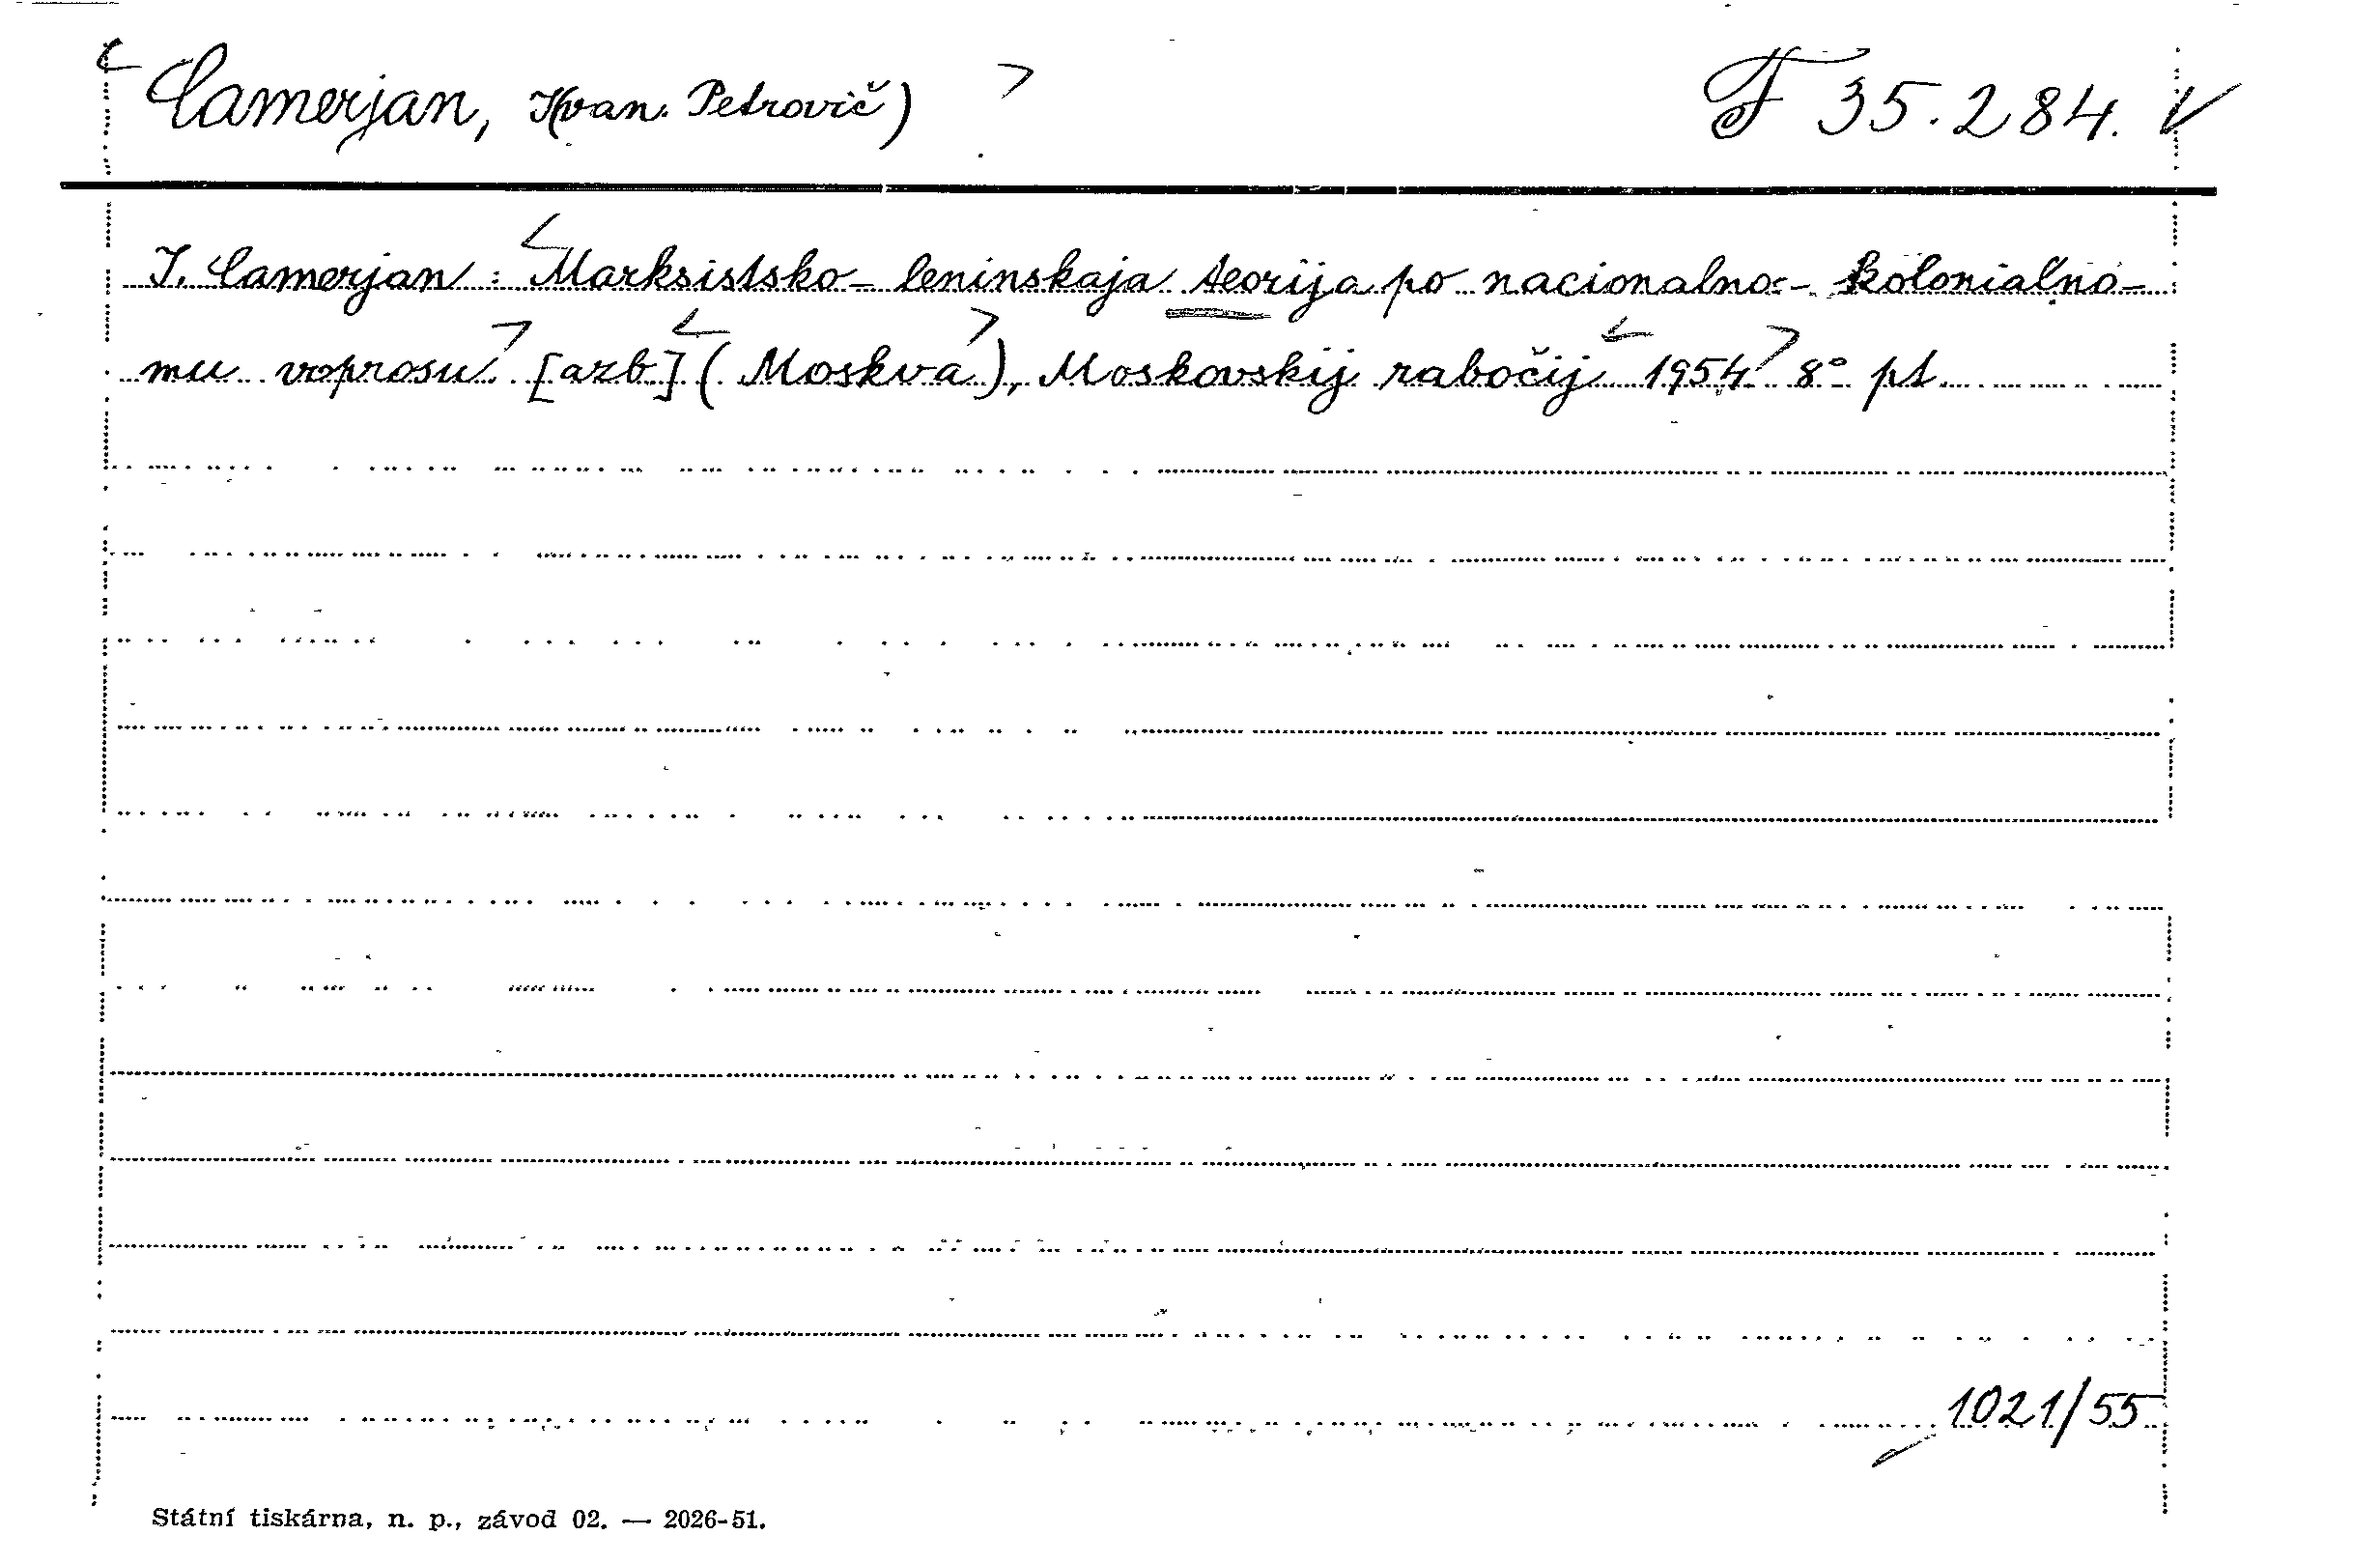 Camerjan, I(van Petrovič) F 35.284. V
I. Camerjan: Marksistsko-leninskaja teorija po nacionalno-kolonialno-
mu voprosu [azb] (Moskva), Moskovskij rabočij 1954 8° pt.
1021/55
Státní tiskárna, n. p., závod 02. — 2026-51.